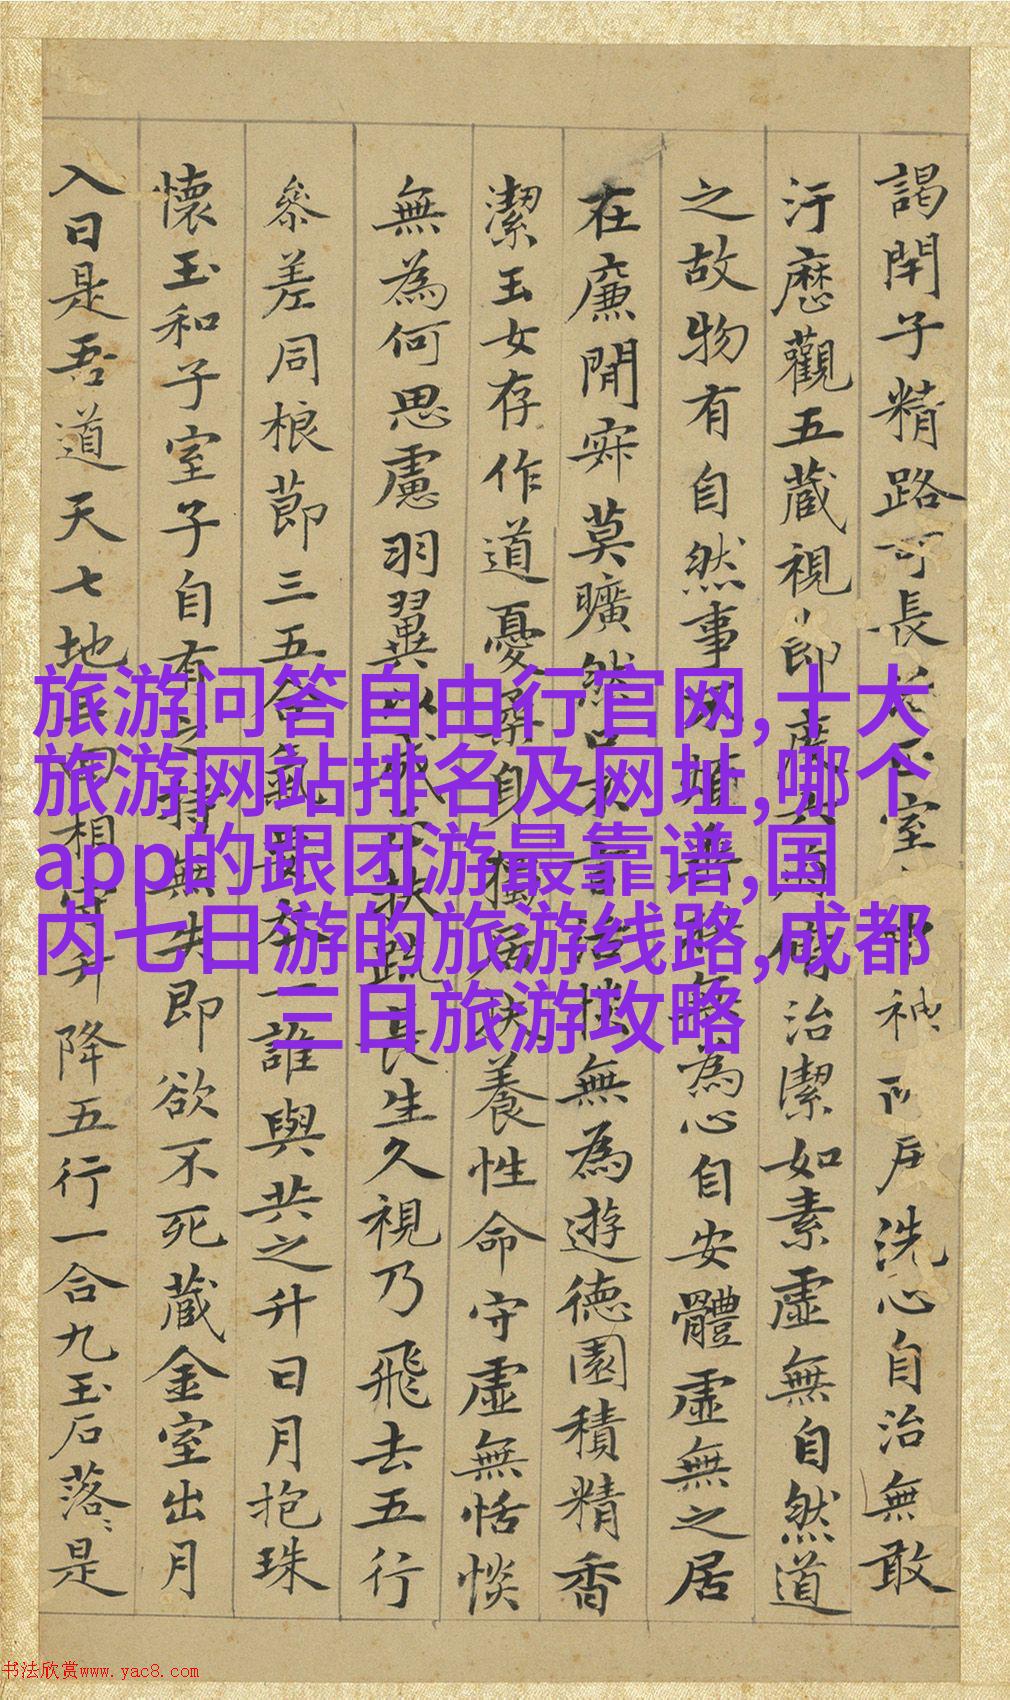 謁閇子精路可長 室 神 戶洗心自治無敢
汙歷觀五藏視 節度 治潔如素虛無自然道
之故物有自然事 無為心自安體虛無之居
在廉閒寂莫曠然 無為遊德園積精香
潔玉女存作道憂 身獨居扶養性命守虛無恬惔
無為何思慮羽翼 扶疏長生久視乃飛去五行
參差同根節三五合氣 一誰與共之升日月抱珠
懷玉和子室子自有之持無失即欲不死藏金室出月
入日是吾道天七地三回相守升降五行一合九玉石落〻是
旅游问答自由行官网,十大
旅游网站排名及网址,哪个
app的跟团游最靠谱,国
内七日游的旅游线路,成都
三日旅游攻略
书法欣赏www.yac8.com